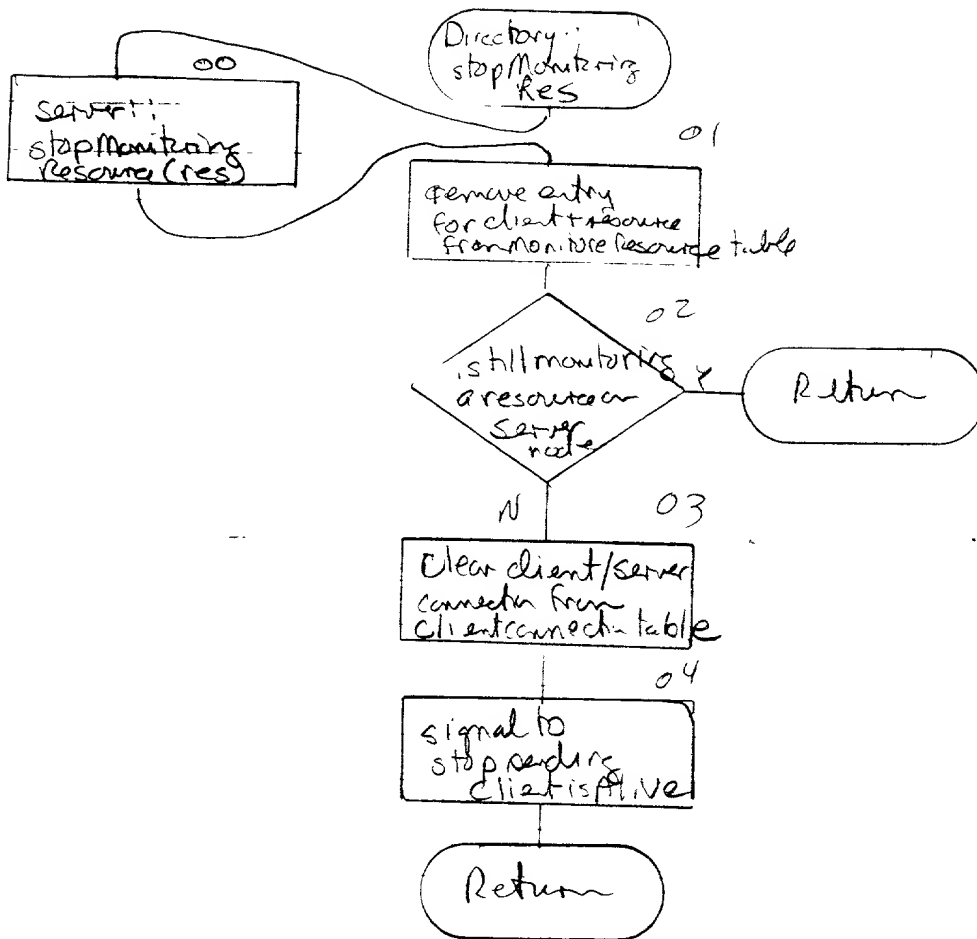 Directory::
stopMonitoring
Res
00
Server::
stopMonitoring
Resource(res)
01
remove entry
for client + resource
from monitor Resource table
02
still monitoring
a resource on
server
node
Y
Return
N
03
Clear client/server
connection from
client connection table
04
signal to
stop sending
client is Alive
Return